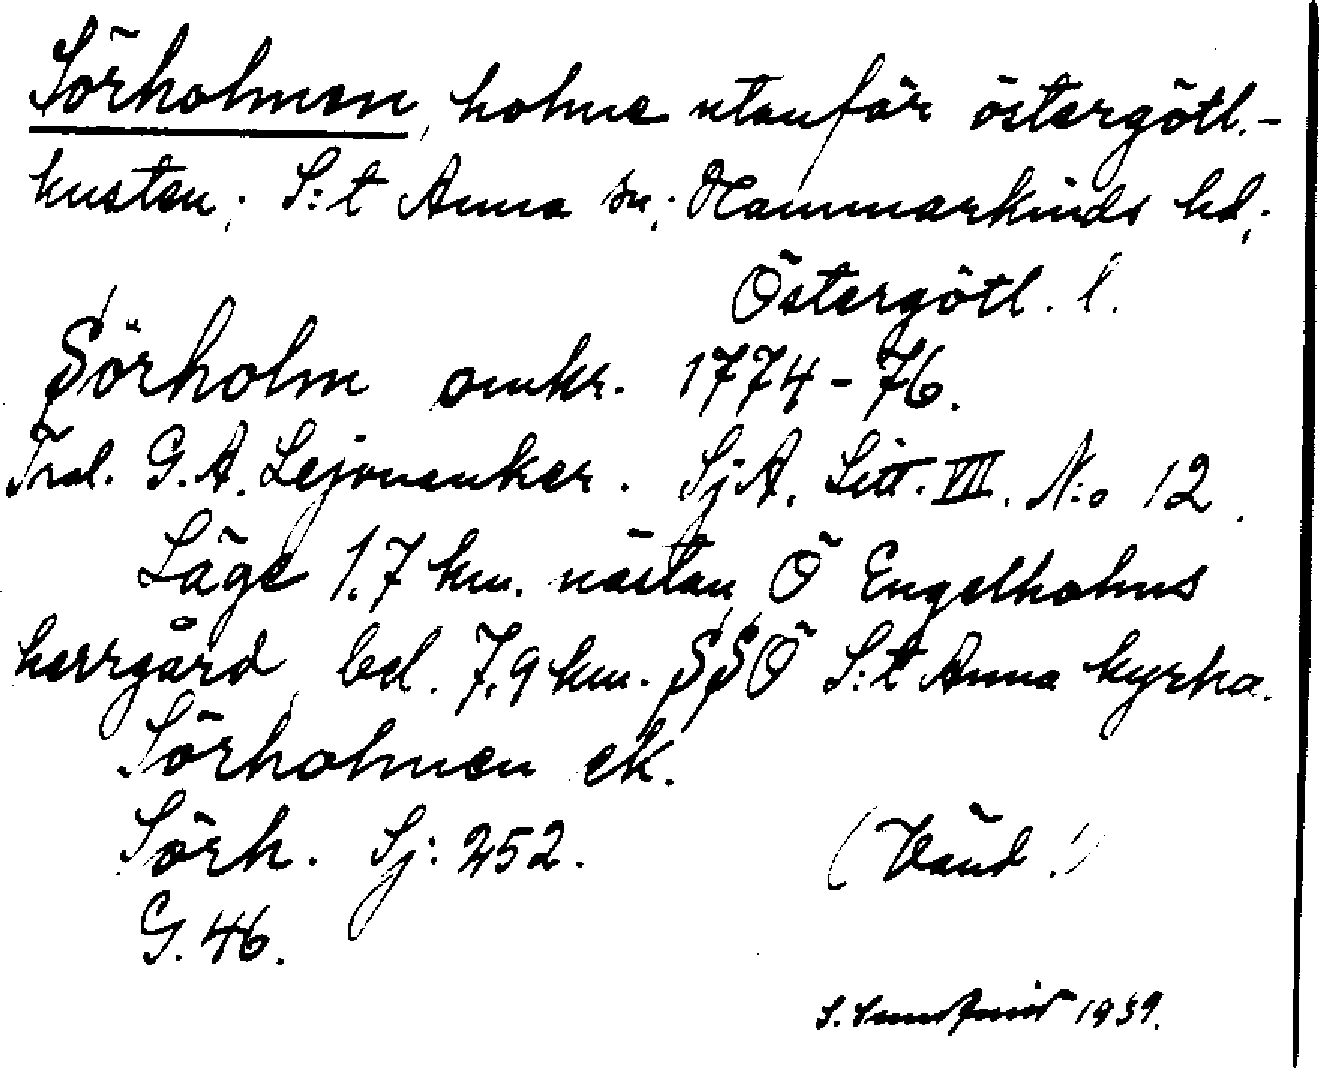 Sörholmen, holme utanför östergötl.-
kusten; S:t Anna sn; Hammarkinds hd;
Östergötl. l.
Sörholm omkr. 1774-76.
Trol. G. A. Lejonanker. Sj:A. Litt. VII. N:o 12.
Läge 1.7 km. nästan Ö Engelholms
herrgård, bel. 7,9 km. SSÖ S:t Anna kyrka.
Sörholmen ek.
Sörh. Sj: 252. (Vänd!)
G. 46.
S. 1939.